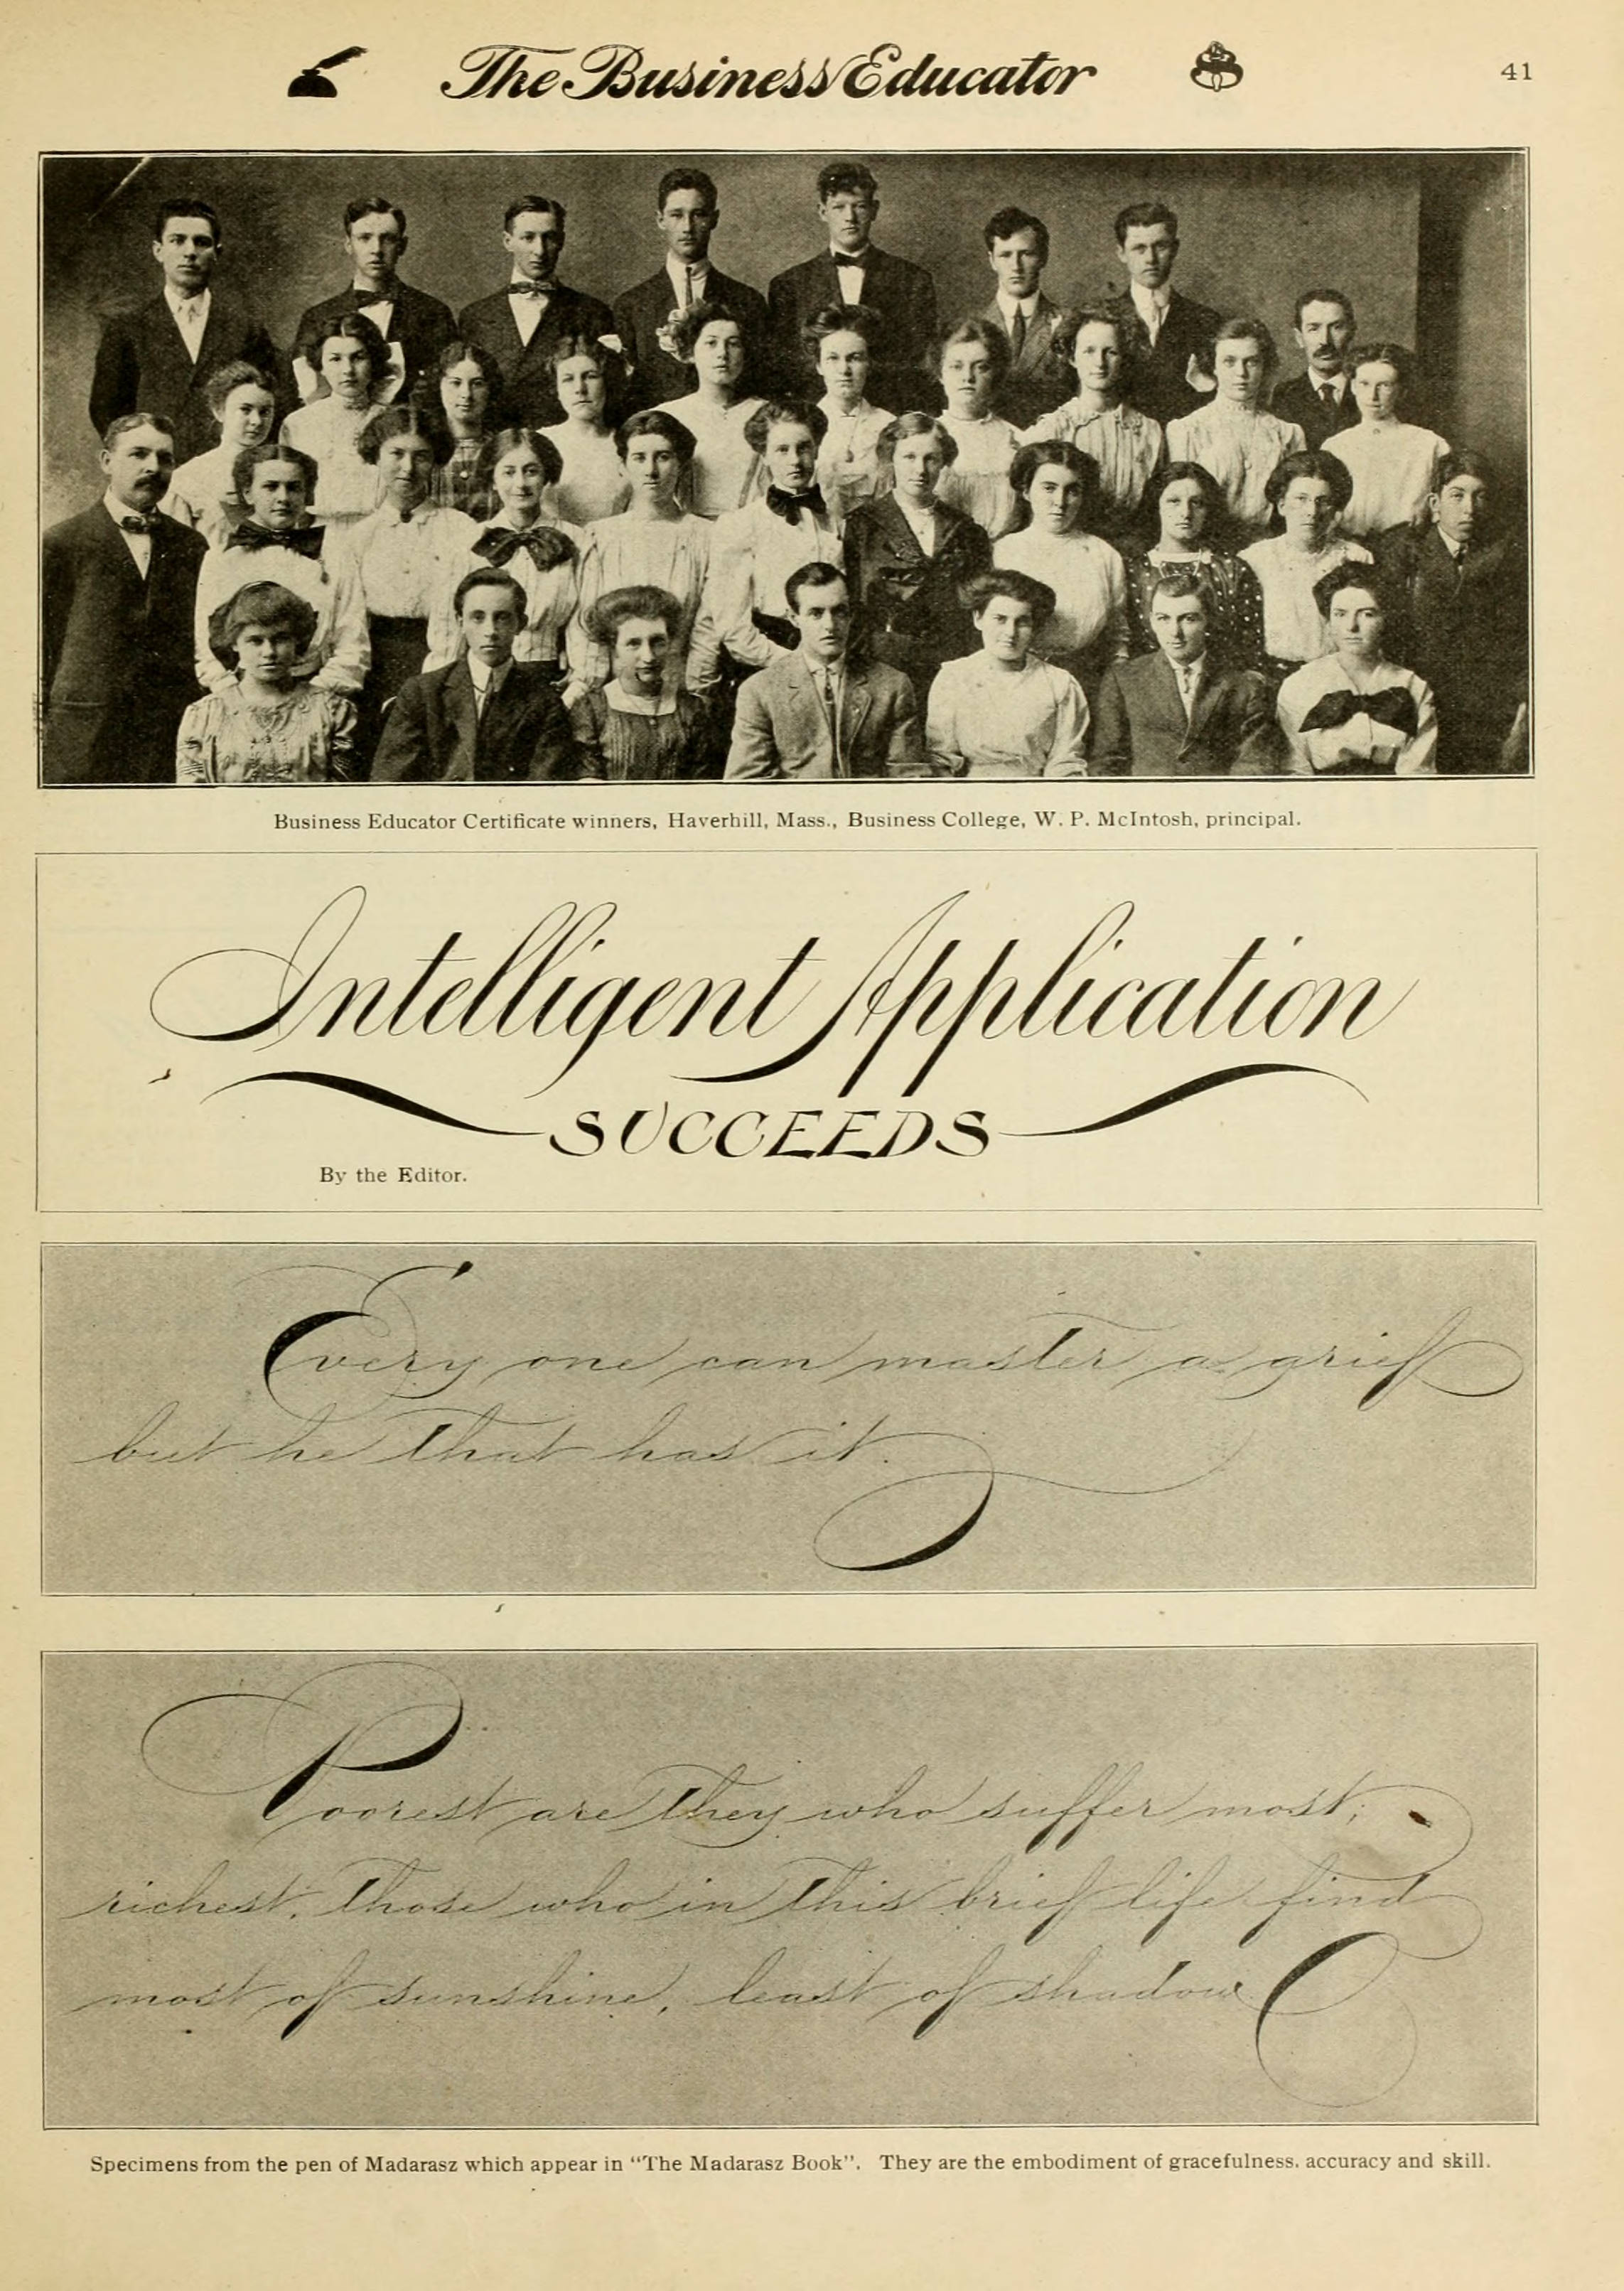 The Business Educator
41
Business Educator Certificate winners, Haverhill, Mass., Business College, W. P. McIntosh, principal.
Intelligent Application
SUCCEEDS
By the Editor.
Every one can master a grief
but he that has it.
Poorest are they who suffer most;
richest, those who in this brief life find
most of sunshine, least of shadow
Specimens from the pen of Madarasz which appear in "The Madarasz Book". They are the embodiment of gracefulness. accuracy and skill.